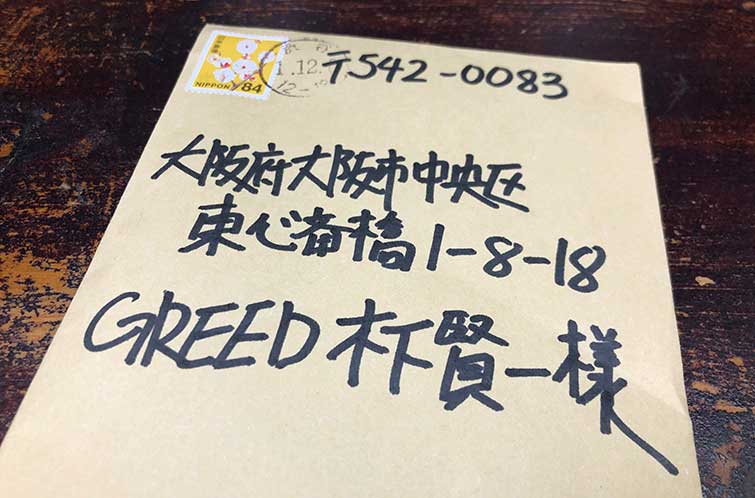 〒542-0083
大阪府大阪市中央区
東心斎橋1-8-18
GREED 木下賢一様
NIPPON 84
1.12.
12-